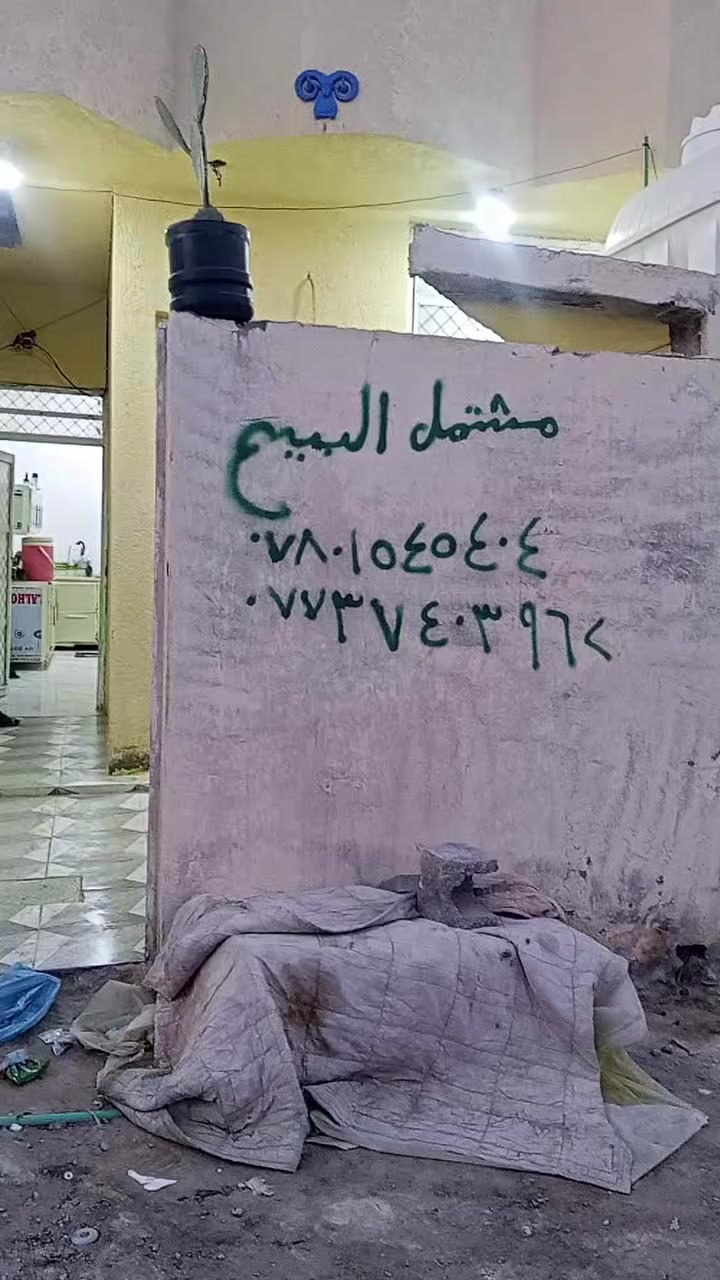 مشتمل البيع
٠٧٨٠١٥٤٥٤٠٤
٠٧٧٣٧٤٠٣٩٦<